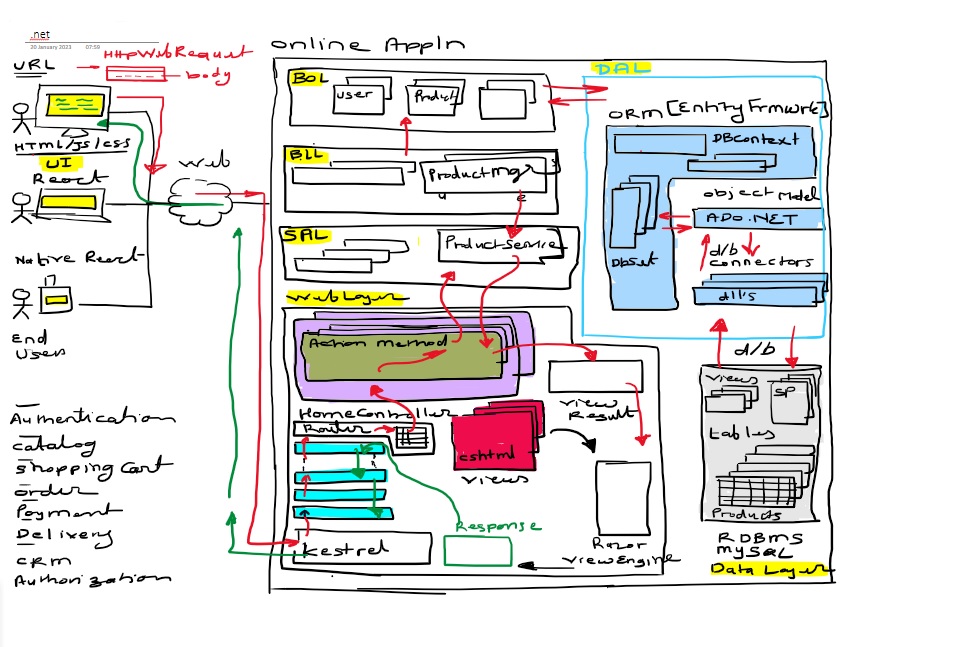 .net
20 January 2023 07:58
URL
HttpWebRequest
body
HTML/JS/CSS
UI
React
Native React
End
User
Web
Authentication
catalog
Shopping Cart
order
Payment
Delivery
CRM
Authorization
online Appln
BOL
User
Product
BLL
ProductMgr
SAL
ProductService
WebLayer
Action Method
HomeController
Router
cshtml
views
View
Result
Kestrel
Response
Razor
ViewEngine
DAL
ORM [Entity Frmwrk]
DBContext
object Model
ADO.NET
DbSet
d/b
connectors
dll's
d/b
Views
SP
tables
Products
RDBMS
MySQL
Data Layer